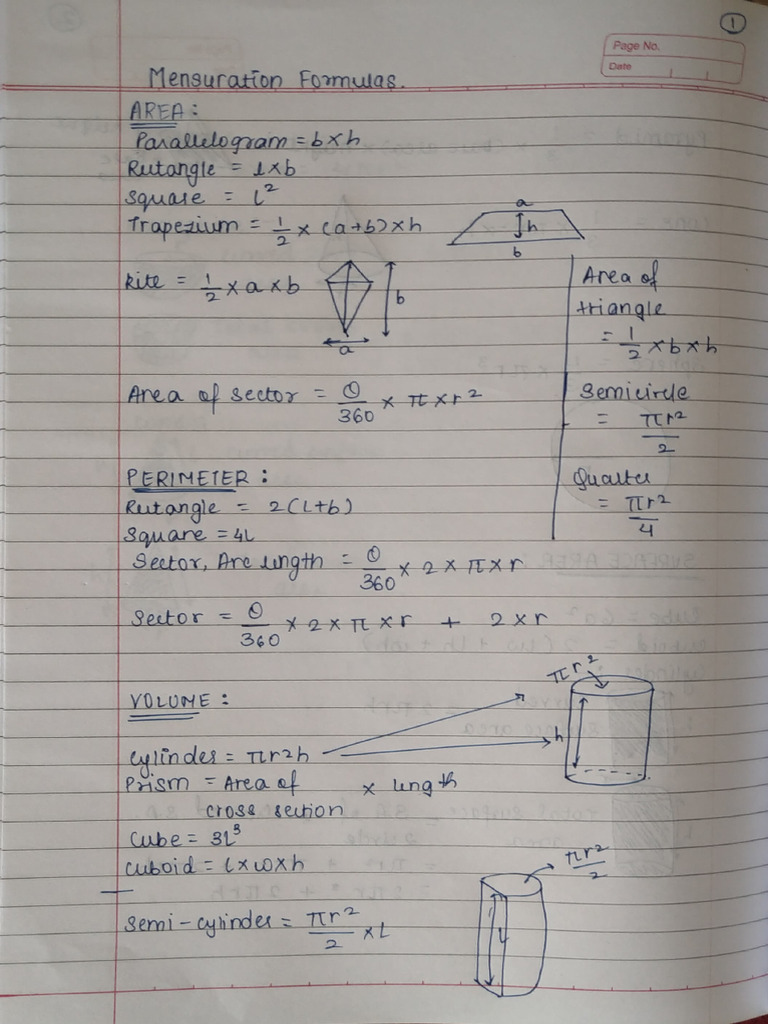 1
Page No.
Date
Mensuration Formulas.
AREA:
Parallelogram = b×h
Rectangle = l×b
Square = l²
Trapezium = 1/2 × (a+b)×h
a
h
b
kite = 1/2 × a × b
b
a
Area of sector = θ/360 × π × r²
Area of
triangle
= 1/2 × b × h
Semicircle
= πr²/2
Quarter
= πr²/4
PERIMETER:
Rectangle = 2(L+b)
Square = 4L
Sector, Arc length = θ/360 × 2 × π × r
Sector = θ/360 × 2 × π × r + 2 × r
VOLUME:
πr²
h
cylinder = πr2h
Prism = Area of × length
cross section
Cube = 3L³
cuboid = l×w×h
πr²/2
Semi-cylinder = πr²/2 × L
L